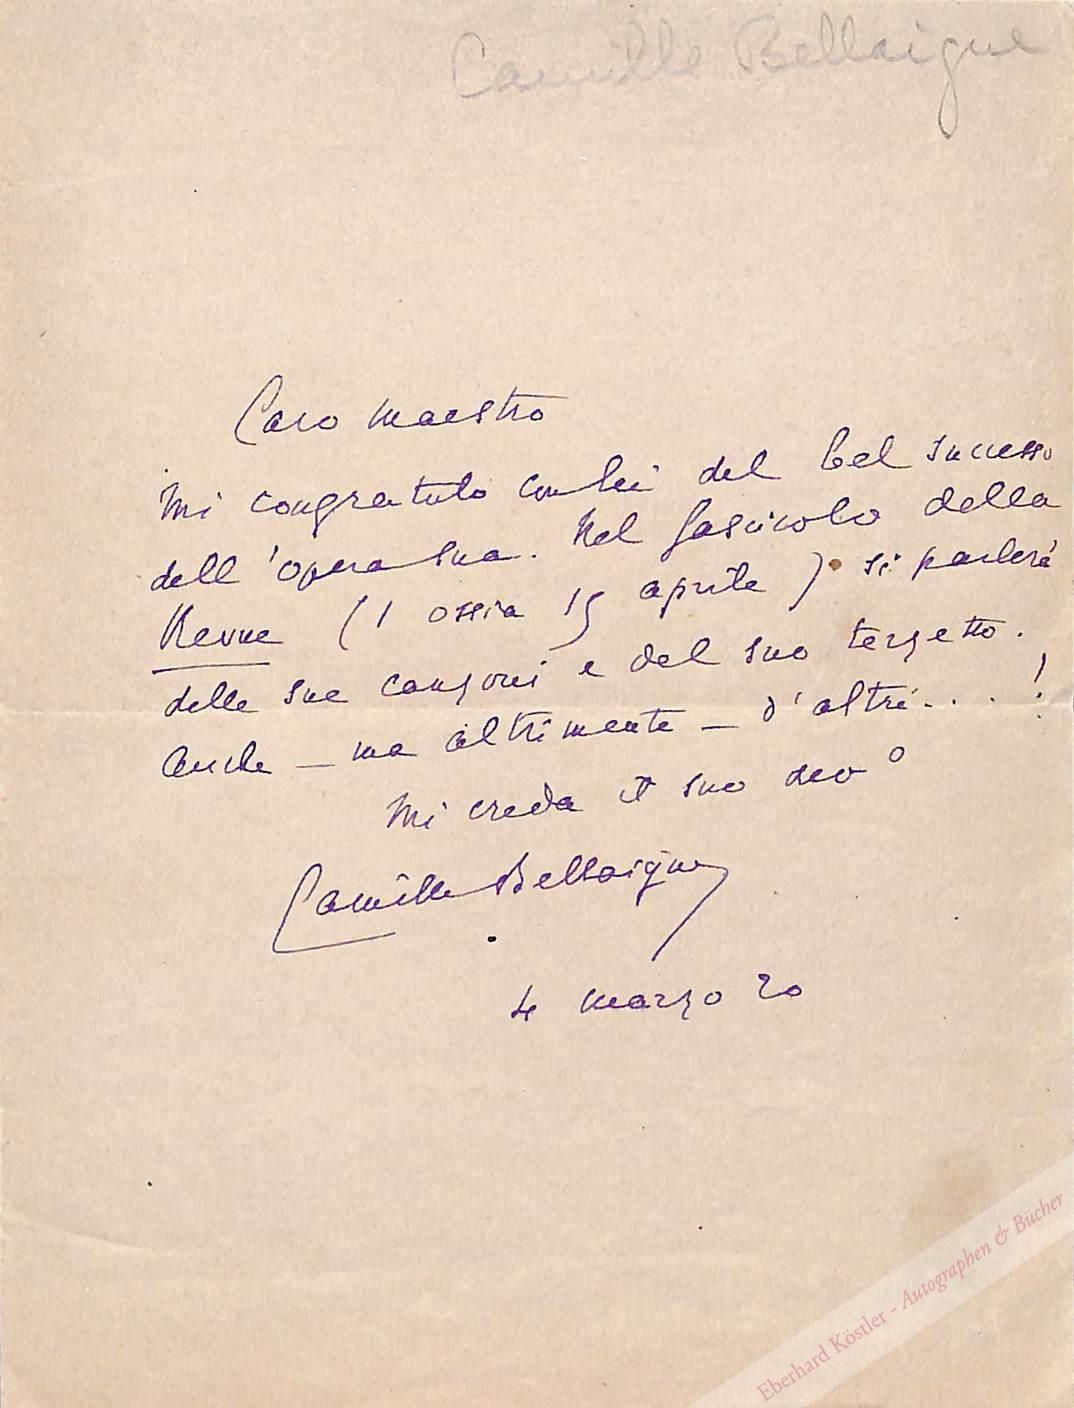 Camille Bellaigue
Caro Maestro
Mi congratulo con Lei del bel successo
dell'opera sua. Nel fascicolo della
Revue (1 ossia 15 aprile) si parlerà
delle sue canzoni e del suo terzetto.
Anche – ma altrimente – d'altri....!
Mi creda il suo devo
Camille Bellaigue
4 marzo 20
Eberhard Köstler - Autographen & Bücher